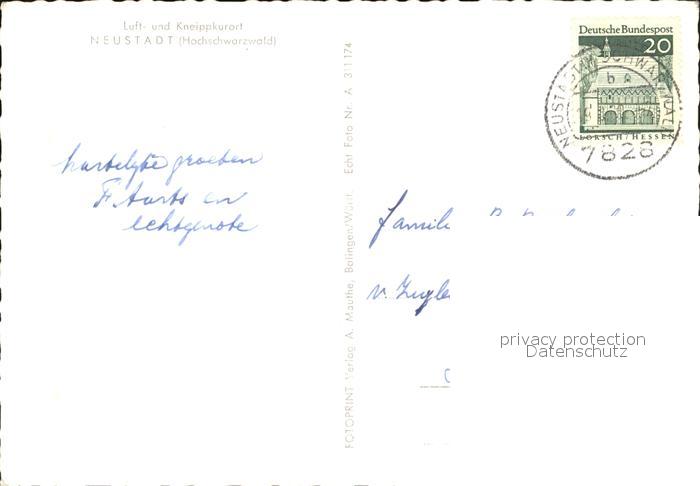 Luft- und Kneippkurort
NEUSTADT (Hochschwarzwald)
hartelyke groeten
F. Aarts en
echtgenote
FOTOPRINT Verlag A. Mauthe, Balingen/Württ. Echt Foto Nr. A 311174
Deutsche Bundespost
20
LORSCH/HESSEN
NEUSTADT SCHWARZWALD
7828
Familie
v. Zigle
privacy protection
Datenschutz